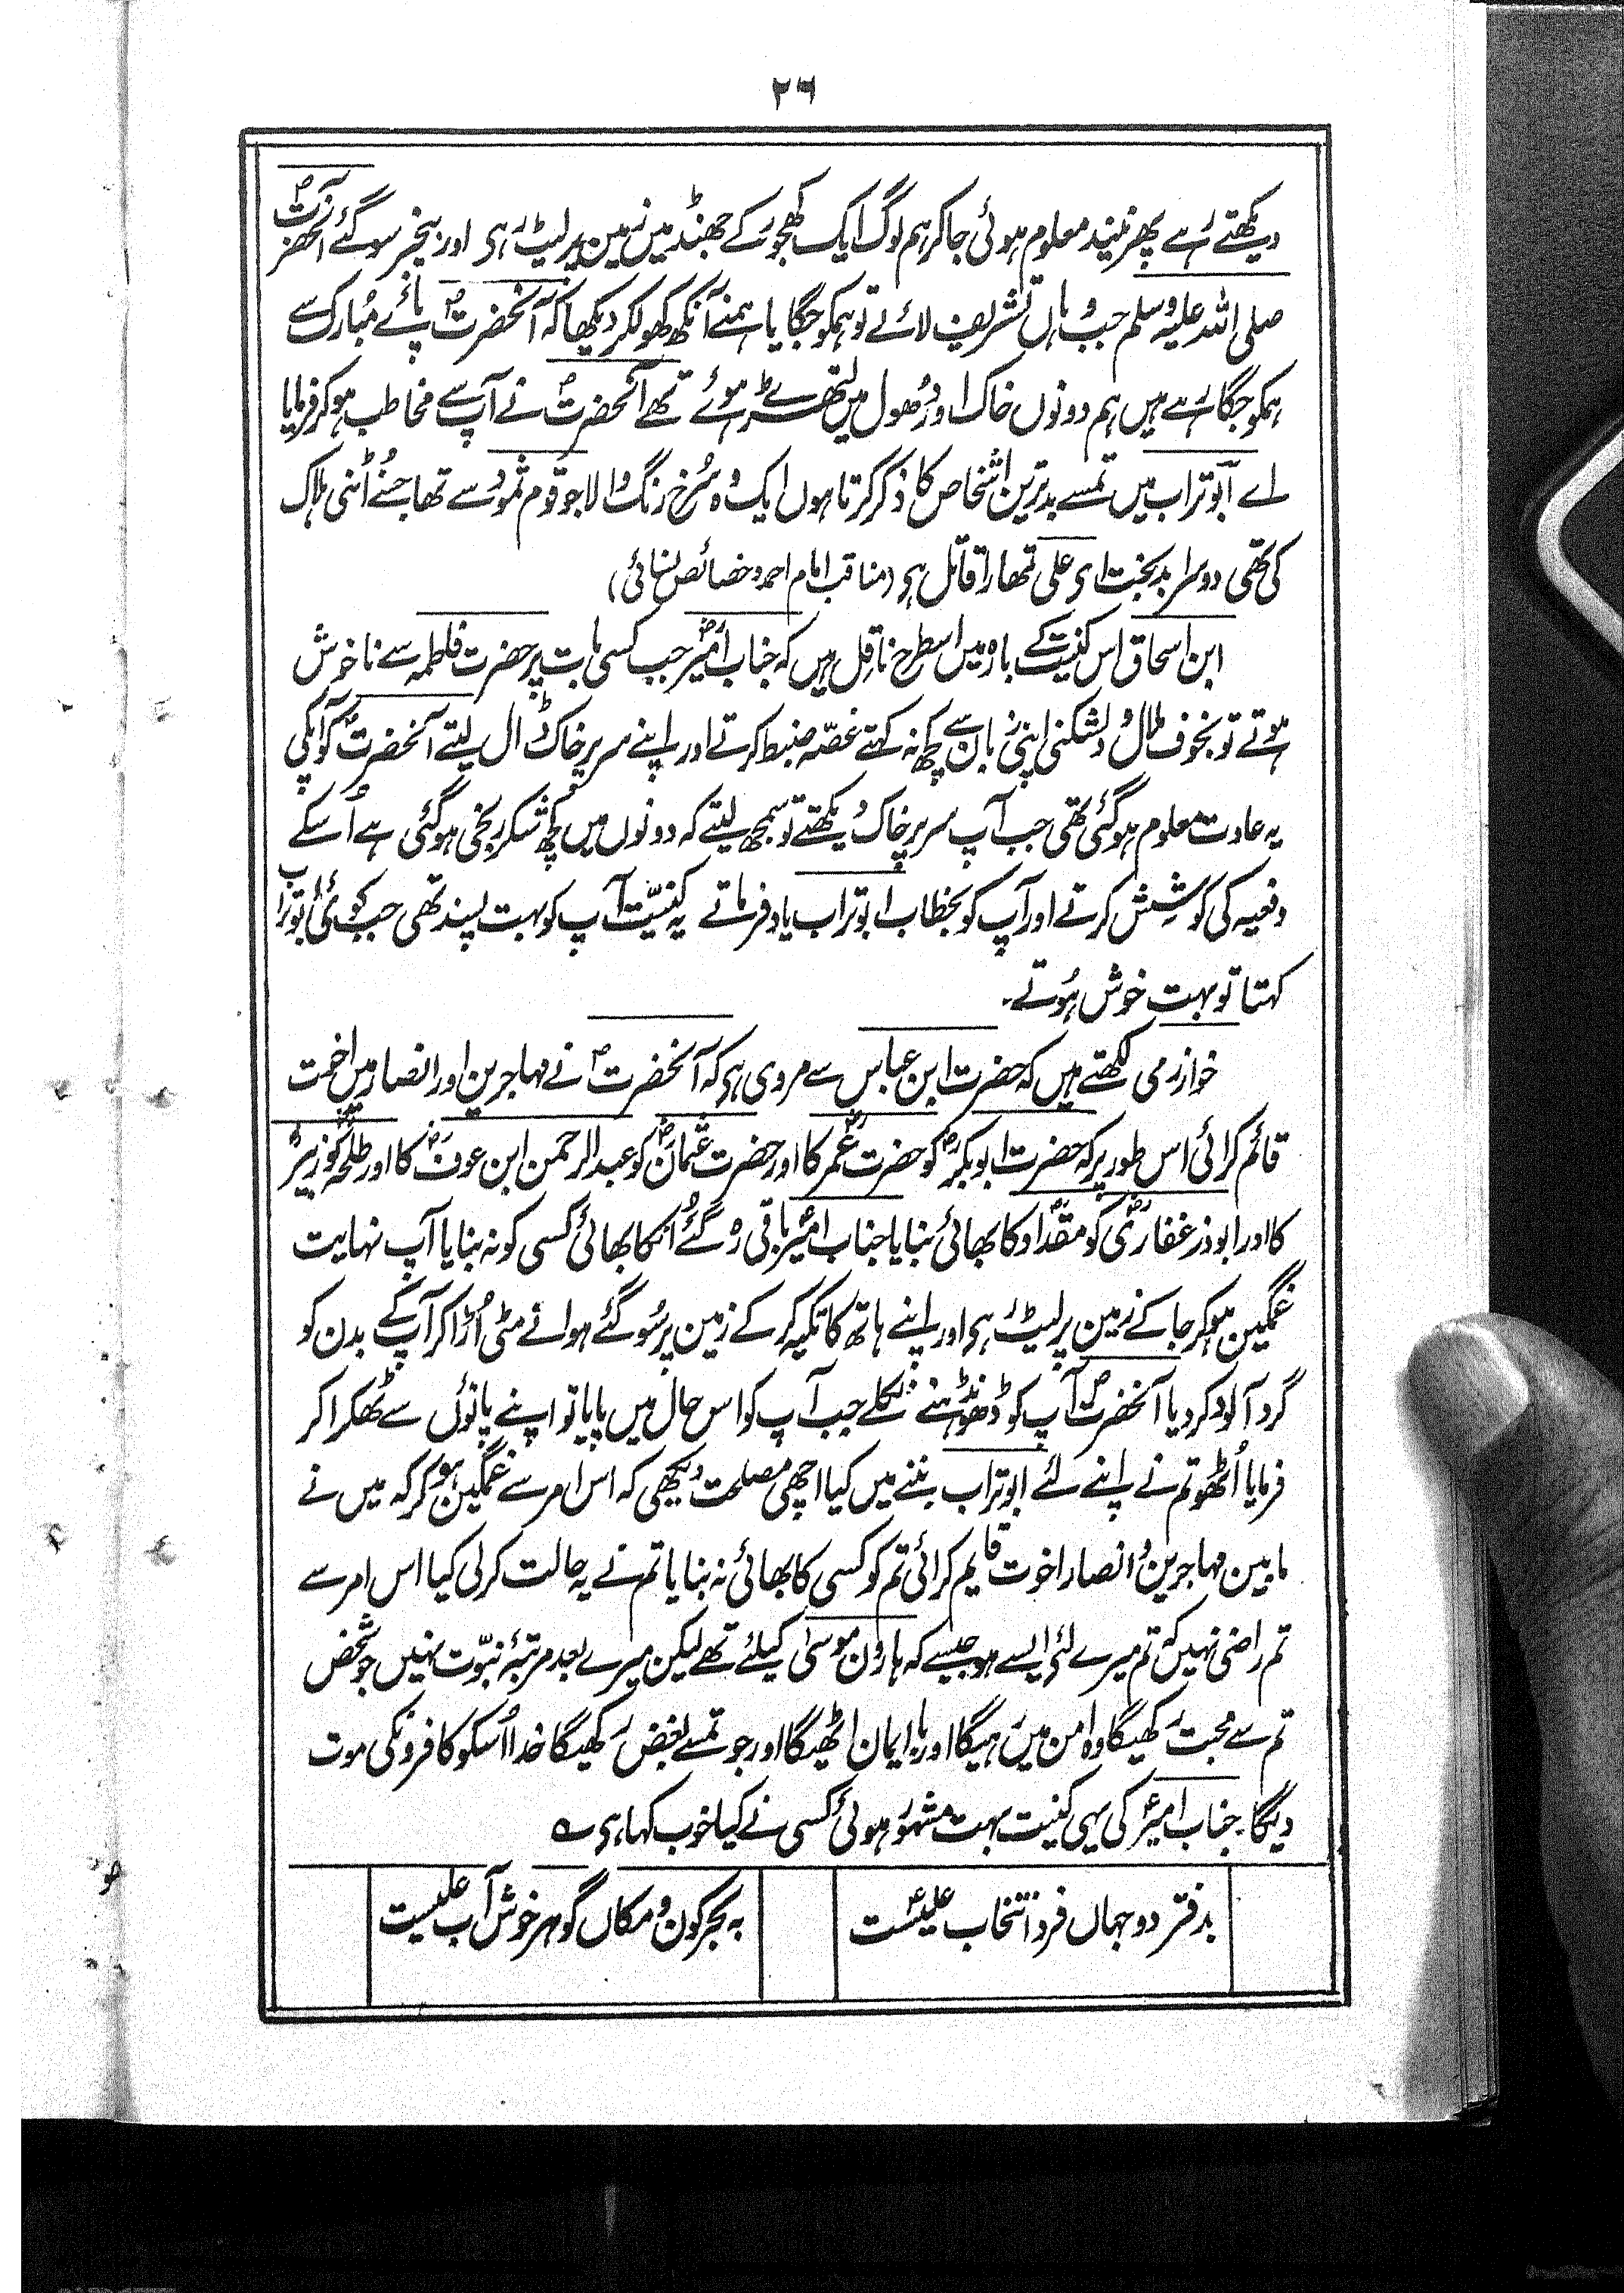 ۲۶
دیکھتے رہے پھر نیند معلوم ہوئی جاکر ہم لوگ ایک کھجور کے جھنڈ میں زمین پر لیٹ رہی اور بیخبر سوگئے آنحضرتؐ
صلی اللہ علیہ وسلم جب وہاں تشریف لائے تو ہمکو جگایا ہمنے آنکھ کھولکر دیکھا کہ آنحضرتؐ پائے مُبارک سے
ہمکو جگا رہے ہیں ہم دونوں خاک اور دُھول میں لتھڑے ہوئے تھے آنحضرتؐ نے آپ سے مخاطب ہوکر فرمایا
اے ابوتراب میں تمسے بدترین اشخاص کا ذکر کرتا ہوں ایک وہ سُرخ رنگ والا جو قوم ثمود سے تھا جسنے اُنٹنی ہلاک
کی تھی دوسرا بدبخت ای علی تمھارا قاتل ہی (مناقب امام احمد و خصائص نسائی)
ابن اسحاق اس کنیت کے بارہ میں اسطرح ناقل ہیں کہ جناب امیرؓ جب کسی بات پر حضرت فاطمہ سے ناخوش
ہوتے تو بخوف ملال و دلشکنی اپنی زبان سے کچھ نہ کہتے غصّہ ضبط کرتے اور اپنے سر پر خاک ڈال لیتے آنحضرتؐ کو آپکی
یہ عادت معلوم ہوگئی تھی جب آپ سر پر خاک دیکھتے تو سمجھ لیتے کہ دونوں میں کچھ شکر رنجی ہوگئی ہے اُسکے
دفعیہ کی کوشش کرتے اور آپ کو بخطاب ابوتراب یاد فرماتے یہ کنیّت آپ کو بہت پسند تھی جب کوئی ابوتراب
کہتا تو بہت خوش ہُوتے۔
خوارزمی لکھتے ہیں کہ حضرت ابن عباس سے مروی ہی کہ آنحضرتؐ نے مہاجرین اور انصار میں اخوت
قائم کرائی اس طور پر کہ حضرت ابوبکرؓ کو حضرت عمرؓ کا اور حضرت عثمانؓ کو عبدالرحمن ابن عوفؓ کا اور طلحہؓ کو زبیرؓ
کا اور ابوذر غفاریؓ کو مقدادؓ کا بھائی بنایا جناب امیرؓ باقی رہ گئے اُنکا بھائی کسی کو نہ بنایا آپ نہایت
غمگین ہوکر جاکے زمین پر لیٹ رہی اور اپنے ہاتھ کا تکیہ کرکے زمین پر سُوگئے ہوانے مٹی اُڑا کر آپ کے بدن کو
گرد آلود کردیا آنحضرتؐ آپ کو ڈھونڈھنے نکلے جب آپ کو اس حال میں پایا تو اپنے پانوٴں سے ٹھکرا کر
فرمایا اُٹھو تم نے اپنے لئے ابوتراب بننے میں کیا اچھی مصلحت دیکھی کہ اس امر سے غمگین ہوکر کہ میں نے
مابین مہاجرین و انصار اخوت قایم کرائی تم کو کسی کا بھائی نہ بنایا تم نے یہ حالت کرلی کیا اس امر سے
تم راضی نہیں کہ تم میرے لئے ایسے ہو جیسے کہ ہارون موسیٰ کیلئے تھے لیکن میرے بعد مرتبۂ نبّوت نہیں جو شخص
تم سے محبت رکھیگا وہ امن میں رہیگا اور باایمان اٹھیگا اور جو تمسے بغض رکھیگا خدا اُسکو کافرونکی موت
دیگا۔ جناب امیرؑ کی یہی کنیت بہت مشہور ہوئی کسی نے کیا خوب کہا ہی ؎
بدفتر دو جہاں فرد انتخاب علیؑست
بہ بحر کون و مکاں گوہر خوش آب علیست